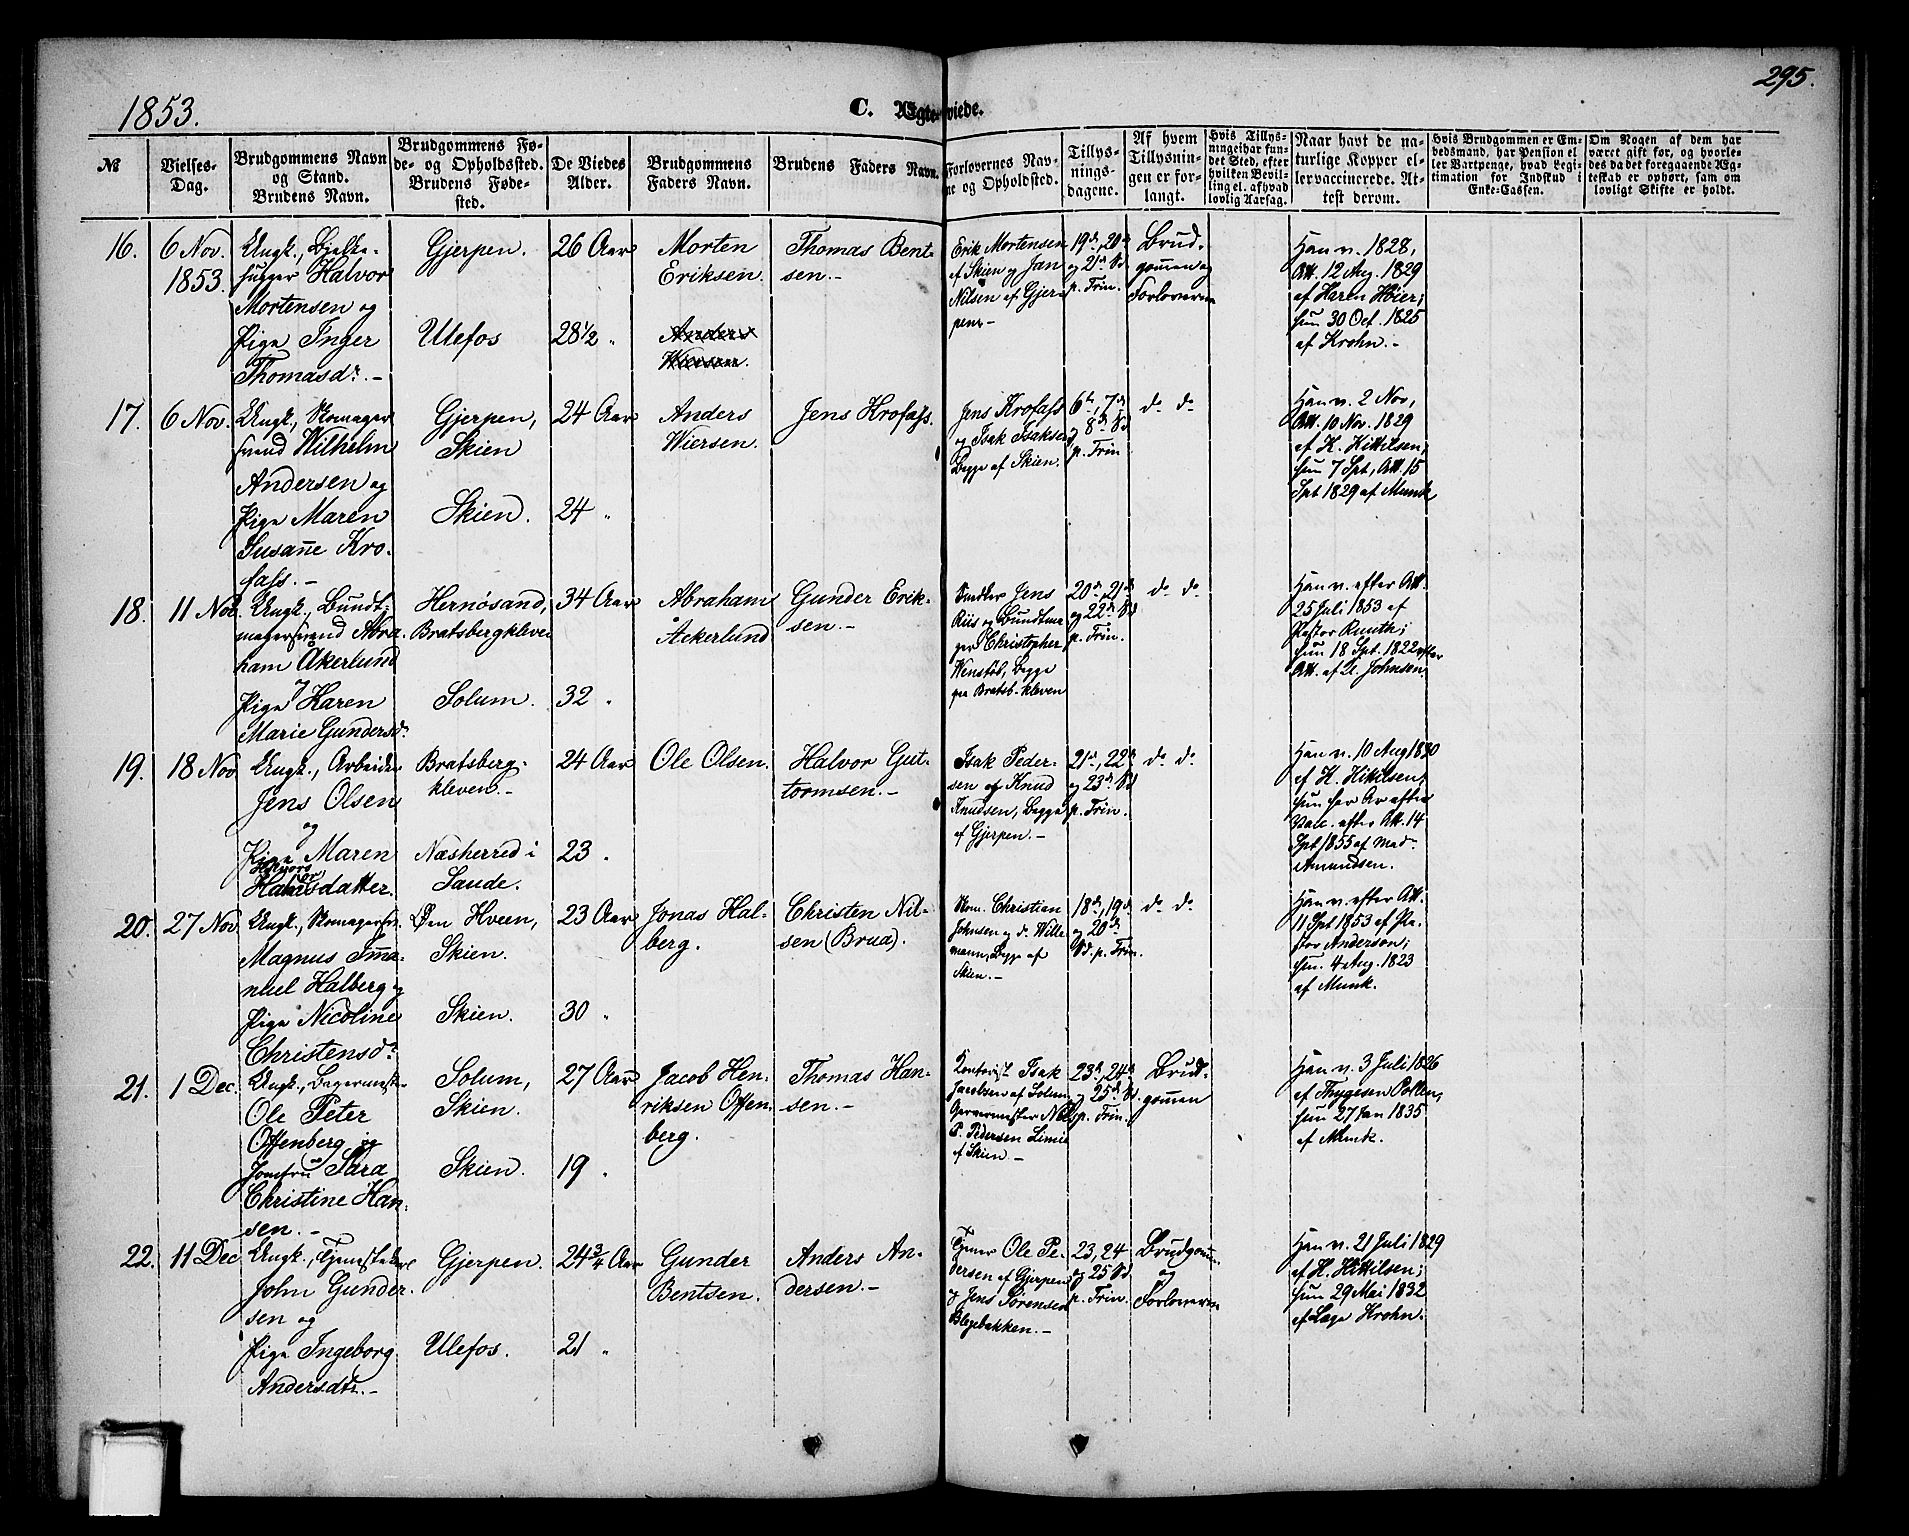 1853.
C. Ægteviede.
295.
№
Vielses-
Dag.
Brudgommens Navn
og Stand.
Brudens Navn.
Brudgommens Fø-
de- og Opholdssted.
Brudens Føde-
sted.
De Viedes
Alder.
Brudgommens
Faders Navn.
Brudens Faders Navn.
Forlovernes Nav-
ne og Opholdsted.
Tillys-
nings-
dagene.
Af hvem
Tillysnin-
gen er for-
langt.
Hvis Tillys-
ning ei har fun-
det Sted, efter
hvilken Bevil-
ling el. af hvad
lovlig Aarsag.
Naar havt de na-
turlige Kopper el-
ler vaccinerede. At-
test derom.
Hvis Brudgommen er Em-
bedsmand, har Pension el
ler Vartpenge, hvad Legi-
timation for Indskud i
Enke-Cassen.
Om Nogen af dem har
været gift før, og hvorle-
des da det foregaaende Æg-
teskab er ophørt, sam om
lovligt Skifte er holdt.
16.
6 Nov.
1853.
Ungk., Bjelke-
hugger Halvor
Mortensen og
Pige Inger
Thomasdr. -
Gjerpen.
Ulefos
26 Aar
28 1/2 "
Morten
Eriksen.
Anders
Wiersen.
Thomas Bent-
sen. -
Erik Mortensen
af Skien og Jan
Nilsen af Gjer-
pen -
19de, 20de
og 21de Sd
p. Trin.
Brud-
gomen og
Forloverne
Han v. 1828,
Att. 12 Aug. 1829
af Maren Høier;
hun 30 Oct. 1825
af Krohn. -
17.
6 Nov.
Ungk., Skomager
svend Wilhelm
Andersen og
Pige Maren
Susanne Kro-
fass. -
Gjerpen,
Skien
Skien.
24 Aar
24 "
Anders
Wiersen.
Jens Krofass.
Jens Krofass
og Isak Isaksen
Begge af Skien.
6te, 7de
og 8de Sd
p. Trin
do do
Han v. 2 Nov,
Att. 10 Nov. 1829
af H. Kittilsen;
hun 7 Spt, Att. 15
Spt 1829 af Munk
18.
11 Nov.
Ungk., Bundt-
magersvend Abra-
ham Åkerlund
og
Pige Karen
Marie Gundersdr
Hernøsand,
Bratsbergkleven
Solum.
34 Aar
32 "
Abraham
Åckerlund
Gunder Erik-
sen. -
Snedker Jens
Riis og Bundtma
ger Christopher
Wenstøb, Begge
paa Bratsb.kleven
20de, 21de
og 22de Sd
p. Trin.
do do
Han v. efter Att.
25 Juli 1853 af
Pastor Ruuth;
hun 18 Spt. 1822 efter
Att. af A. Johnsen
19.
18 Nov
Ungk., Arbeider
Jens Olsen
og
Pige Maren
Halvors
Hansdatter.
Bratsberg-
kleven. -
Næsherred i
Saude.
24 Aar
23 "
Ole Olsen.
Halvor Gut-
tormsen. -
Isak Peder-
sen og Knud
Knudsen, Begge
af Gjerpen. -
21de, 22de
og 23de Sd
p. Trin.
do do
Han v. 10 Aug 1830
af H. Kittilsen;
hun har Ar efter
Vacc. efter Att. 14
Spt 1855 af Mad.
Amundsen.
20.
27 Nov
Ungk., Skomagersv.
Magnus Ima-
nuel Halberg og
Pige Nicoline
Christensdr.
Øen Hveen,
Skien.
Skien.
23 Aar
30 "
Jonas Hal-
berg.
Christen Nil-
sen (Brua).
Skom. Christian
Johnsen og do. Wille
mann, Begge af
Skien. -
18de, 19de
og 20de
Sd. p. Trin.
do do
Han v. efter Att.
11 Spt 1853 af Pa-
stor Anderson;
hun. 4 Aug. 1823
af Munk.
21.
1 Dec.
Ungk., Bagermest-
Ole Peter
Offenberg og
Jomfru Sara
Christine Han-
sen. -
Solum,
Skien.
Skien.
27 Aar
19 "
Jacob Hen-
riksen Offen
berg.
Thomas Han-
sen. -
Kontorist Isak
Jacobsen af Solum
Garvermester Nils
P. Pedersen Limie
af Skien. -
23de, 24de
og 25de Sd.
p. Trin.
Brud-
gomen
Han v. 3 Juli 1826
af Thygesen Bollen,
hun 27 Jan 1835
af Munk.
22.
11 Dec
Ungk., Tjenestekarl
John Gunder-
sen og
Pige Ingeborg
Andersdtr. -
Gjerpen.
Ulefos.
24 3/4 Aar
21 "
Gunder
Bentsen.
Anders An-
dersen. -
Tjener Ole Pe-
dersen af Gjerpen
og Jens Sørensen
Blegebakken. -
23, 24
og 25 Sd
p. Trin.
Brudgom.
og
Forloverne
Han v. 21 Juli 1829
af H. Kittilsen;
hun 29 Mai 1832
af Læge Krohn.